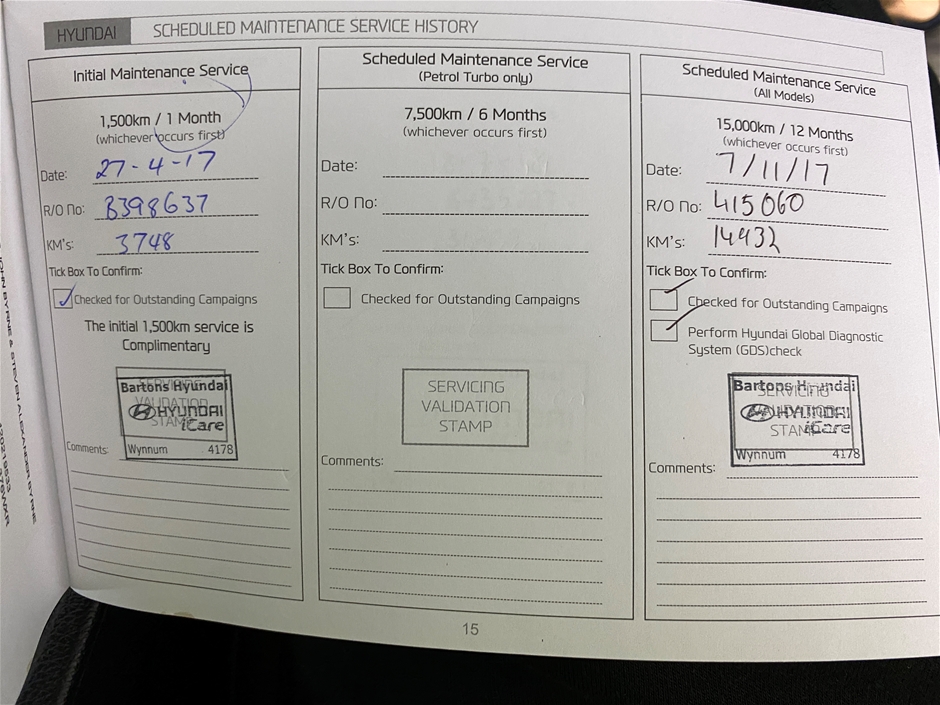 HYUNDAI SCHEDULED MAINTENANCE SERVICE HISTORY
Initial Maintenance Service
1,500km / 1 Month
(whichever occurs first)
Date: 27-4-17
R/O No: B398637
KM's: 3748
Tick Box To Confirm:
Checked for Outstanding Campaigns
The initial 1,500km service is
Complimentary
SERVICING
VALIDATION
STAMP
Bartons Hyundai
HYUNDAI
iCare
Wynnum 4178
Comments:
Scheduled Maintenance Service
(Petrol Turbo only)
7,500km / 6 Months
(whichever occurs first)
Date:
R/O No:
KM's:
Tick Box To Confirm:
Checked for Outstanding Campaigns
SERVICING
VALIDATION
STAMP
Comments:
Scheduled Maintenance Service
(All Models)
15,000km / 12 Months
(whichever occurs first)
Date: 7/11/17
R/O No: 415060
KM's: 14932
Tick Box To Confirm:
Checked for Outstanding Campaigns
Perform Hyundai Global Diagnostic
System (GDS)check
SERVICING
VALIDATION
STAMP
Bartons Hyundai
HYUNDAI
iCare
Wynnum 4178
Comments:
15
JOHN BYRNE & STEVEN ALEXANDER BYRNE